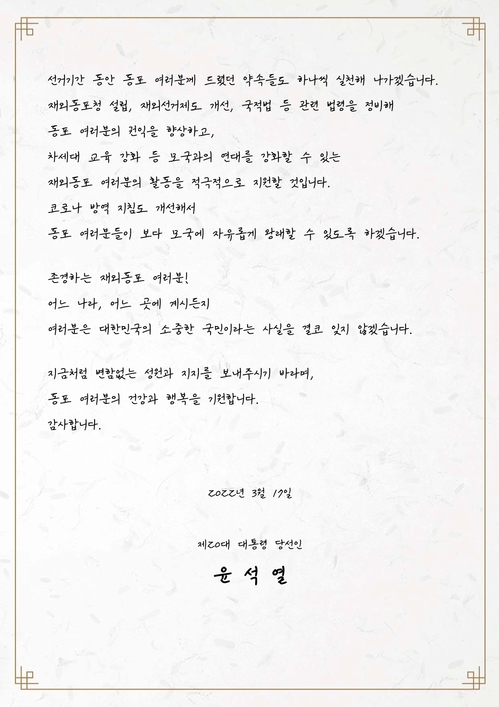 선거기간 동안 동포 여러분께 드렸던 약속들도 하나씩 실천해 나가겠습니다.
재외동포청 설립, 재외선거제도 개선, 국적법 등 관련 법령을 정비해
동포 여러분의 권익을 향상하고,
차세대 교육 강화 등 모국과의 연대를 강화할 수 있는
재외동포 여러분의 활동을 적극적으로 지원할 것입니다.
코로나 방역 지침도 개선해서
동포 여러분들이 보다 모국에 자유롭게 왕래할 수 있도록 하겠습니다.
존경하는 재외동포 여러분!
어느 나라, 어느 곳에 계시든지
여러분은 대한민국의 소중한 국민이라는 사실을 결코 잊지 않겠습니다.
지금처럼 변함없는 성원과 지지를 보내주시기 바라며,
동포 여러분의 건강과 행복을 기원합니다.
감사합니다.
2022년 3월 17일
제20대 대통령 당선인
윤석열